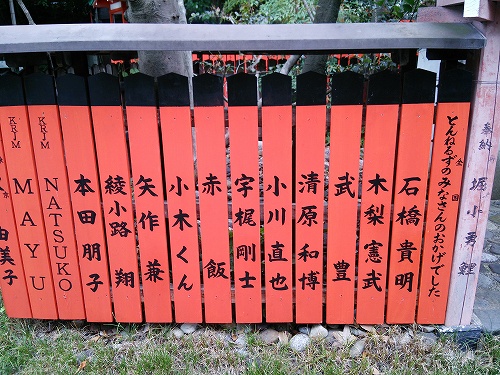 奉納 堀小勇鯉
とんねるずの全国のみなさんのおかげでした
石橋貴明
木梨憲武
武 豊
清原和博
小川直也
宇梶剛士
赤 飯
小木くん
矢作 兼
綾小路 翔
本田朋子
KRIM NATSUKO
KRIM MAYU
由美子